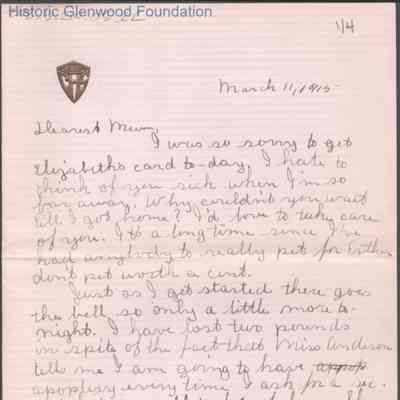 Historic Glenwood Foundation
1/4
March 11, 1915
Dearest Muvy
I was so sorry to get
Elizabeths card to-day. I hate to
think of you sick when I'm so
far away. Why couldn't you wait
till I got home? I'd love to take care
of you. It's a long time since I've
had anybody to really pet for Esther
don't pet worth a cent.
Just as I get started there goes
the bell so only a little more to-
night. I have lost two pounds
in spite of the fact that Miss Anderson
tells me I am going to have
apoplexy every time I ask for a sec.